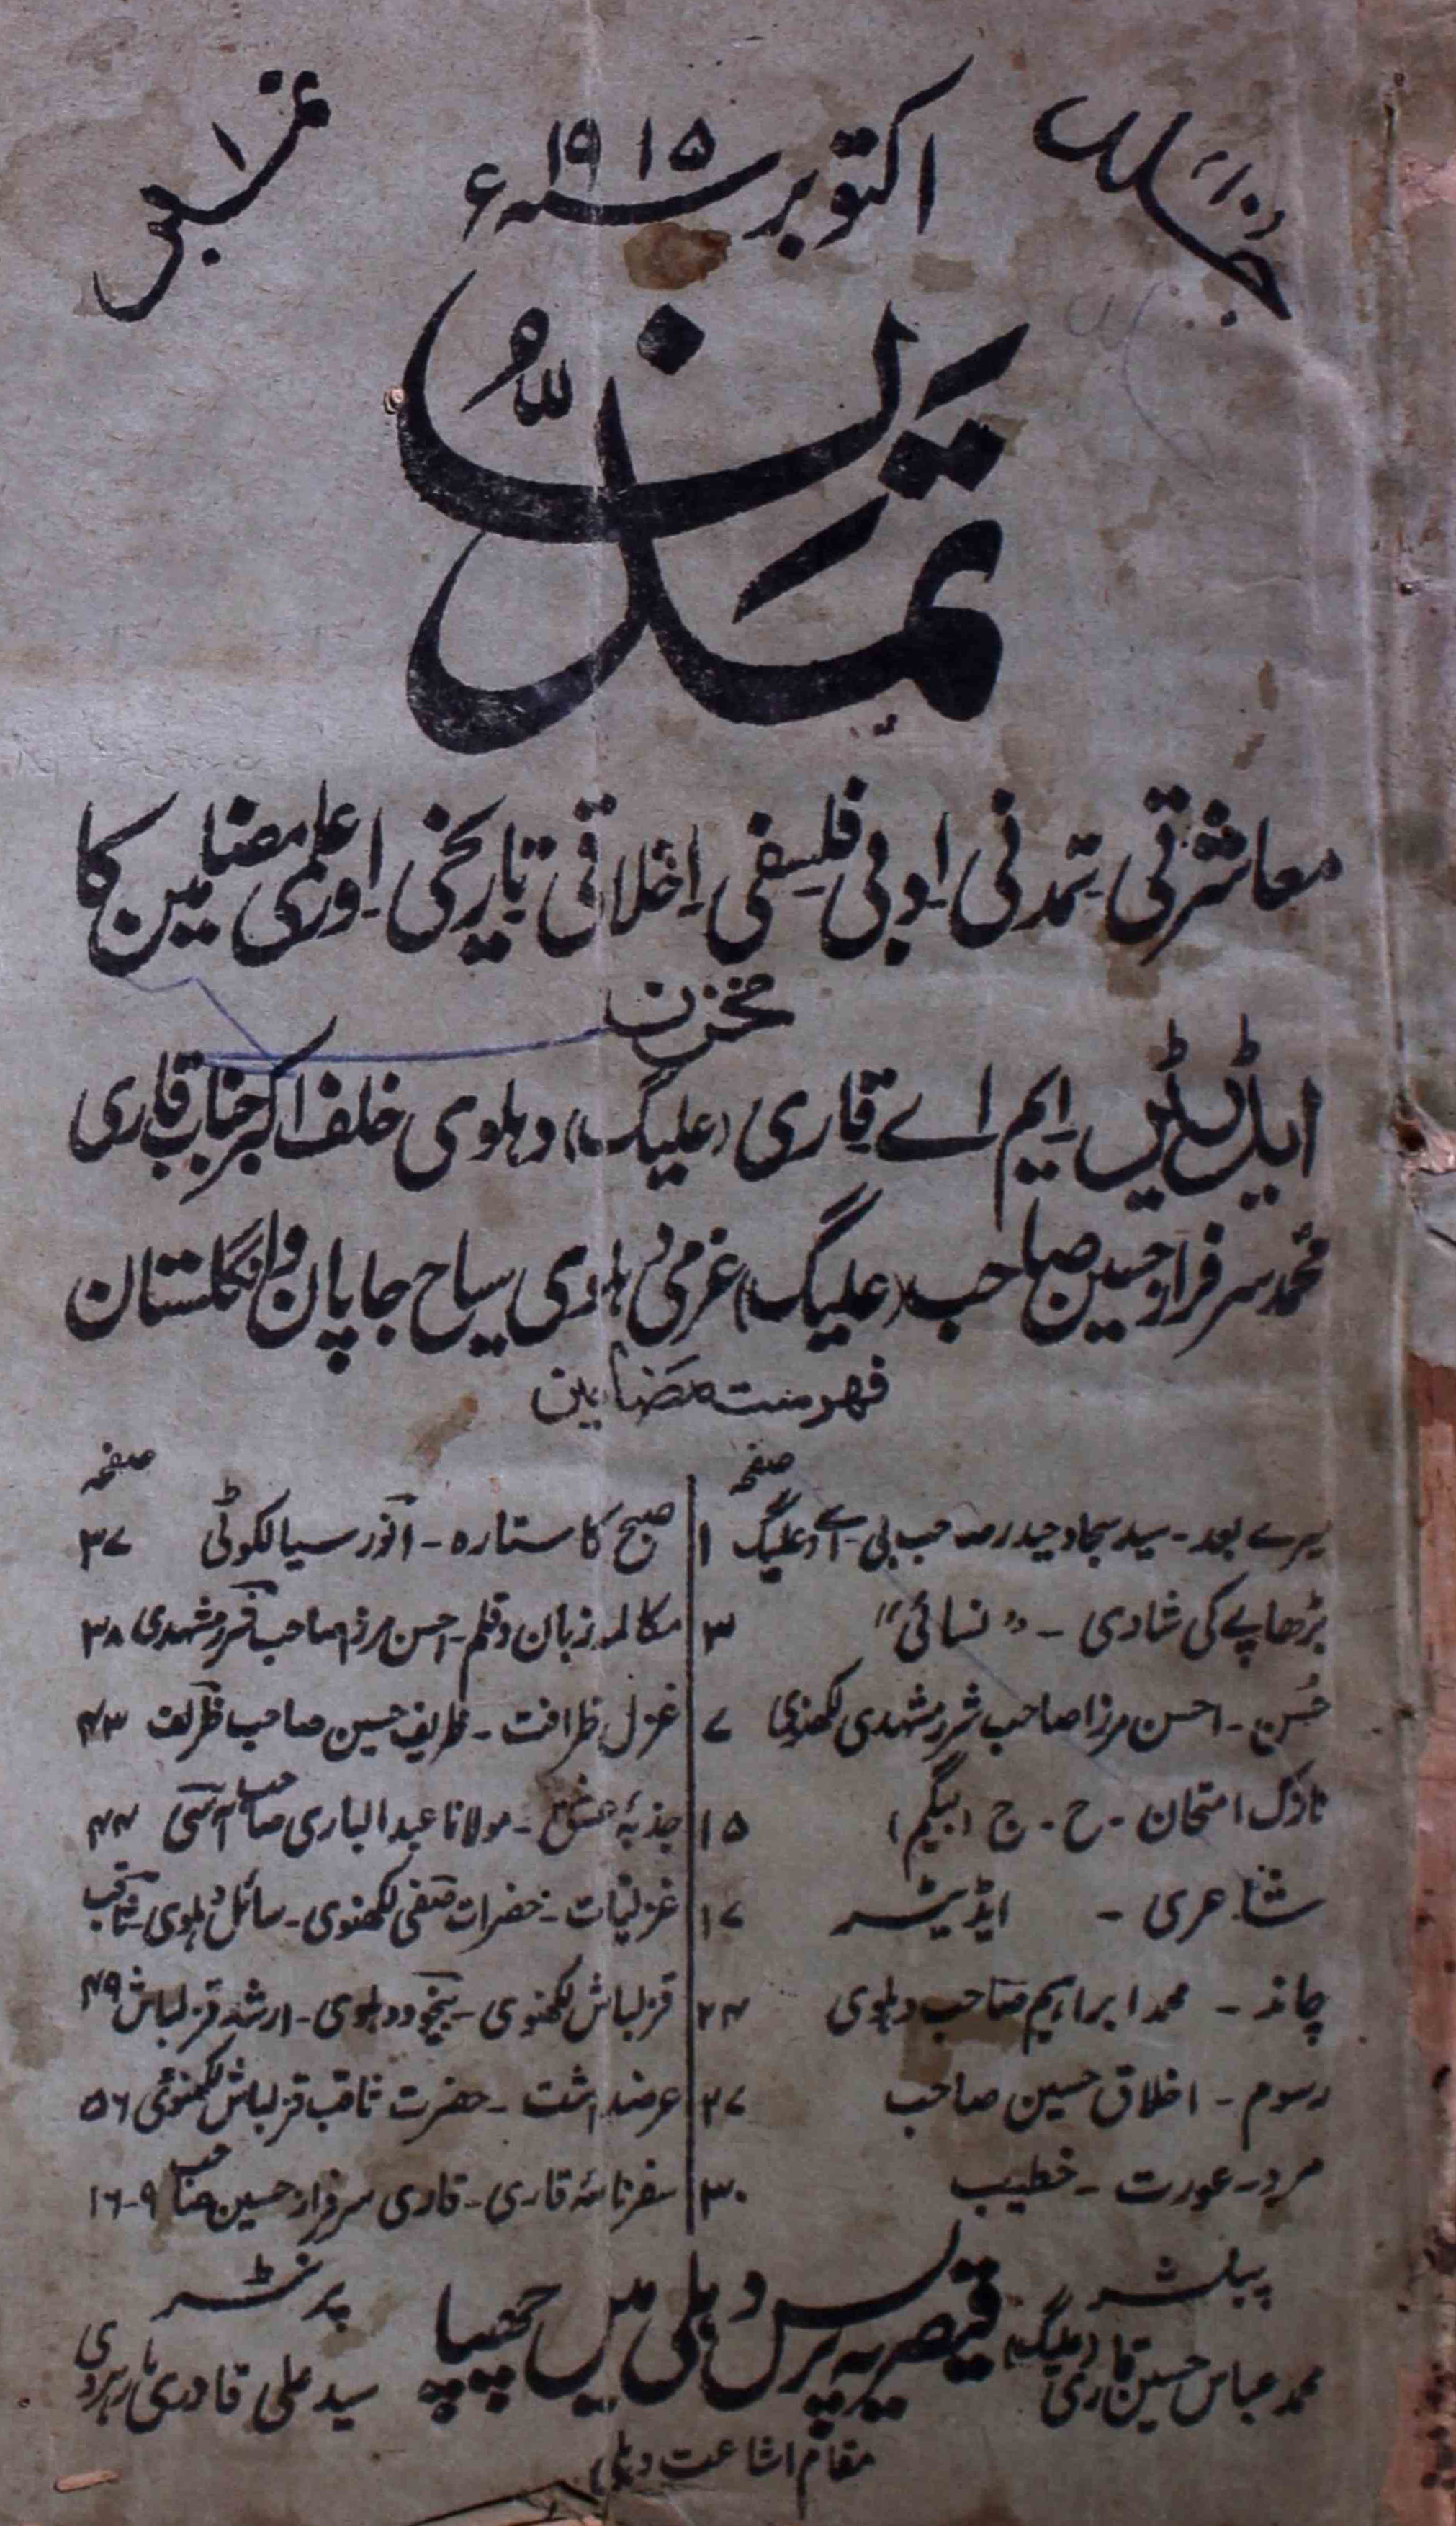 جلد ۱۰
اکتوبر سنہ ۱۹۱۵ء
نمبر ۱
تمدّن
معاشرتی تمدنی ادبی فلسفی اخلاقی تاریخی اور علمی مضامین کا
مخزن
ایڈیٹر ایم اے قاری (علیگ) دہلوی خلف اکبر جناب قاری
محمد سرفراز حسین صاحب (علیگ) عزمی دہلوی سیاح جاپان و انگلستان
فہرست مضامین
صفحہ
میرے بعد - سید سجاد حیدر صاحب بی - اے (علیگ) ۱
بڑھاپے کی شادی - "نسائی" ۳
حُسن - احسن مرزا صاحب شرر مشہدی لکھنوی ۷
نازک امتحان - ح - ج (بیگم) ۱۵
شاعری - ایڈیٹر ۱۷
چاند - محمد ابراہیم صاحب دہلوی ۲۴
رسوم - اخلاق حسین صاحب ۲۷
مرد - عورت - خطیب ۳۰
صفحہ
صبح کا ستارہ - انور سیالکوٹی ۳۷
مکالمہ زبان و قلم - احسن مرزا صاحب شرر مشہدی ۳۸
غزل ظرافت - ظریف حسین صاحب ظریف ۴۳
جذبۂ عشق - مولانا عبدالباری صاحب آسی ۴۴
غزلیات - حضرات صفی لکھنوی - سائل دہلوی - ثاقب
قزلباش لکھنوی - بیخود دہلوی - ارشد قزلباش ۴۹
عرضداشت - حضرت ثاقب قزلباش لکھنوی ۵۶
سفرنامۂ قاری - قاری سرفراز حسین صاحب ۹-۱۶
پبلشر
محمد عباس حسین قاری (علیگ)
قیصریہ پریس دہلی میں چھپا
پرنٹر
سید علی قادری مارہروی
مقام اشاعت دہلی